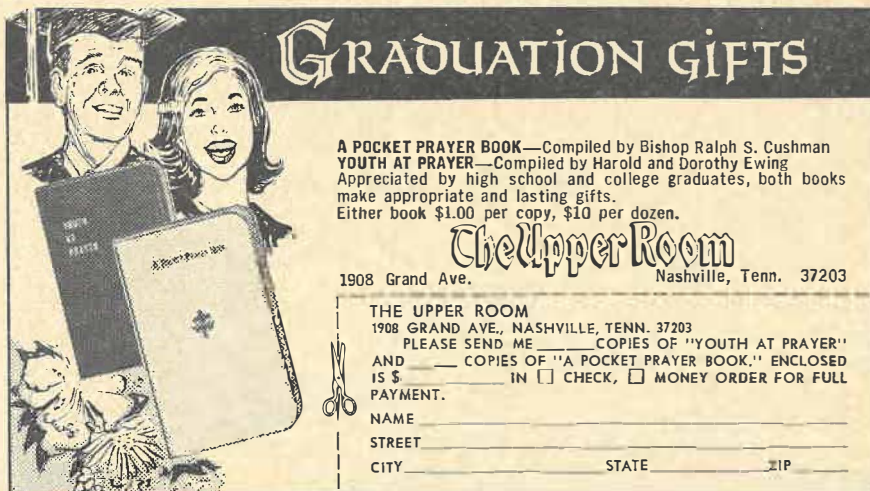 GRADUATION GIFTS
A POCKET PRAYER BOOK—Compiled by Bishop Ralph S. Cushman
YOUTH AT PRAYER—Compiled by Harold and Dorothy Ewing
Appreciated by high school and college graduates, both books
make appropriate and lasting gifts.
Either book $1.00 per copy, $10 per dozen.
The Upper Room
1908 Grand Ave. Nashville, Tenn. 37203
THE UPPER ROOM
1908 GRAND AVE., NASHVILLE, TENN. 37203
PLEASE SEND ME ______COPIES OF "YOUTH AT PRAYER"
AND ______ COPIES OF "A POCKET PRAYER BOOK." ENCLOSED
IS $____________ IN □ CHECK, □ MONEY ORDER FOR FULL
PAYMENT.
NAME
STREET
CITY STATE ZIP
YOUTH
AT
PRAYER
A Pocket Prayer Book